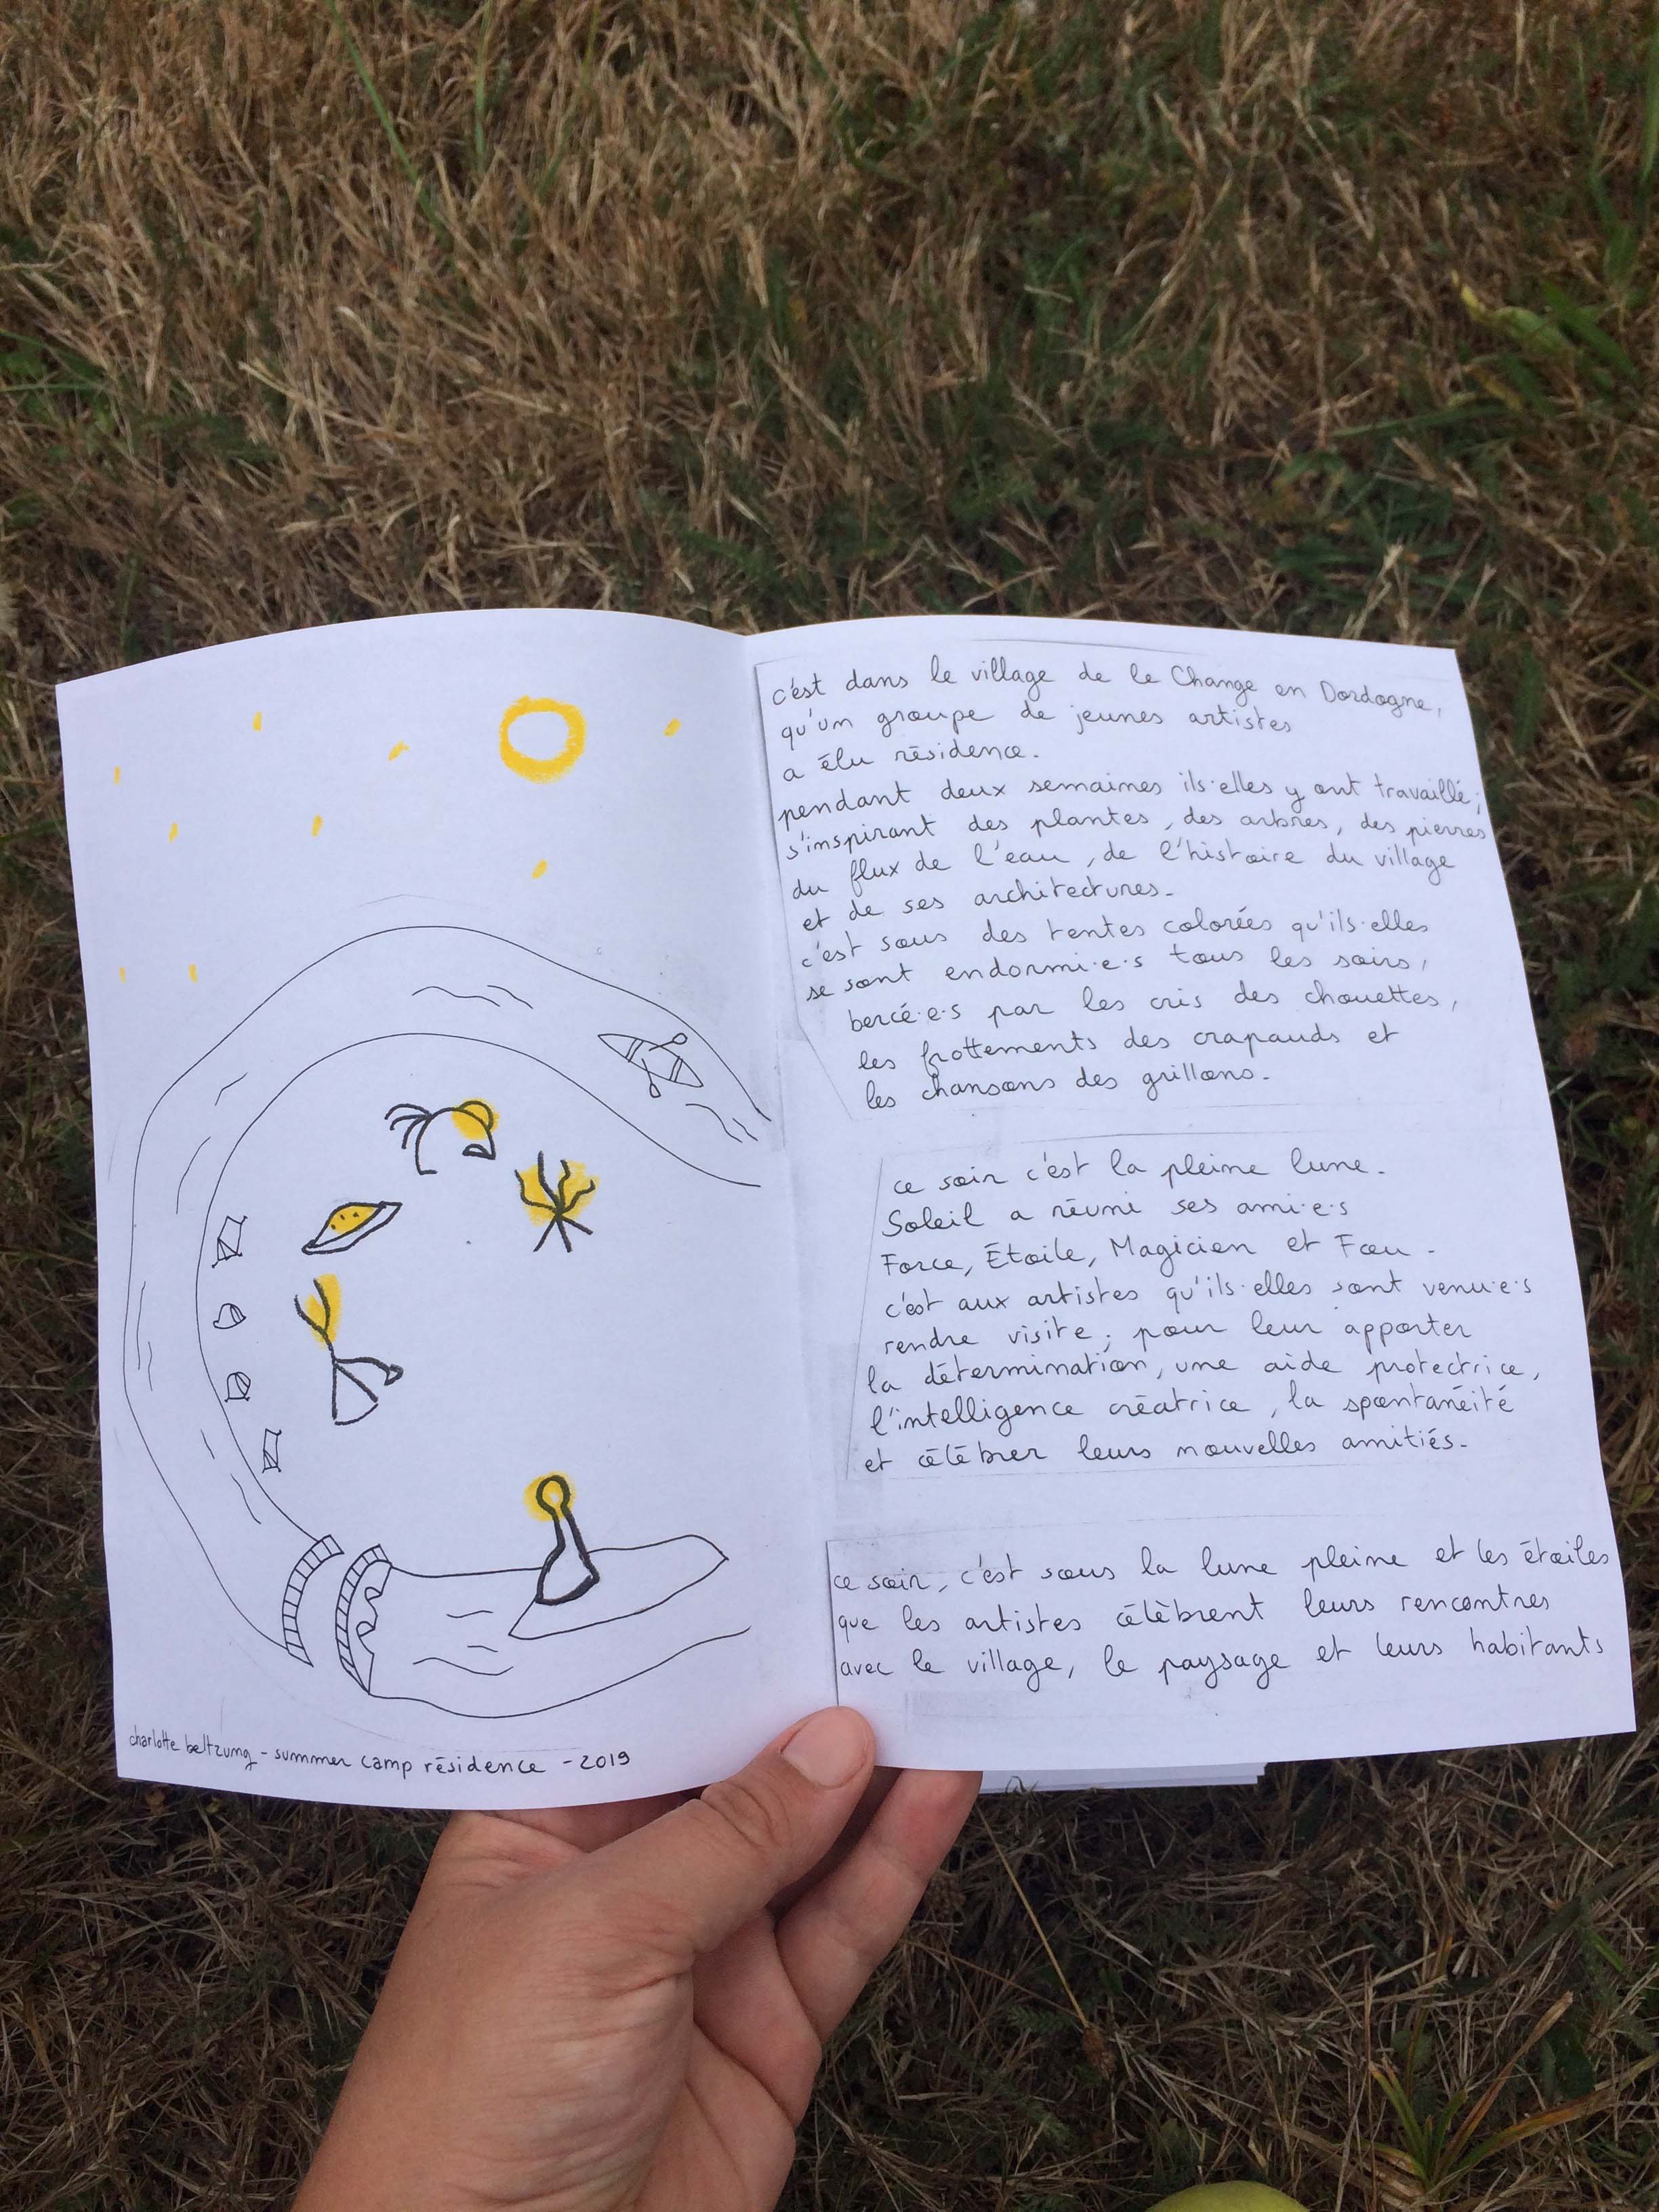 c'est dans le village de le Change en Dordogne,
qu'un groupe de jeunes artistes
a élu résidence.
pendant deux semaines ils·elles y ont travaillé,
s'inspirant des plantes, des arbres, des pierres
du flux de l'eau, de l'histoire du village
et de ses architectures.
c'est sous des tentes colorées qu'ils·elles
se sont endormi·e·s tous les soirs,
bercé·e·s par les cris des chouettes,
les frottements des crapauds et
les chansons des grillons.
ce soir c'est la pleine lune.
Soleil a réuni ses ami·e·s
Force, Étoile, Magicien et Fou.
c'est aux artistes qu'ils·elles sont venu·e·s
rendre visite, pour leur apporter
la détermination, une aide protectrice,
l'intelligence créatrice, la spontanéité
et célébrer leurs nouvelles amitiés.
ce soir, c'est sous la lune pleine et les étoiles
que les artistes célèbrent leurs rencontres
avec le village, le paysage et leurs habitants
charlotte beltzung - summer camp résidence - 2019